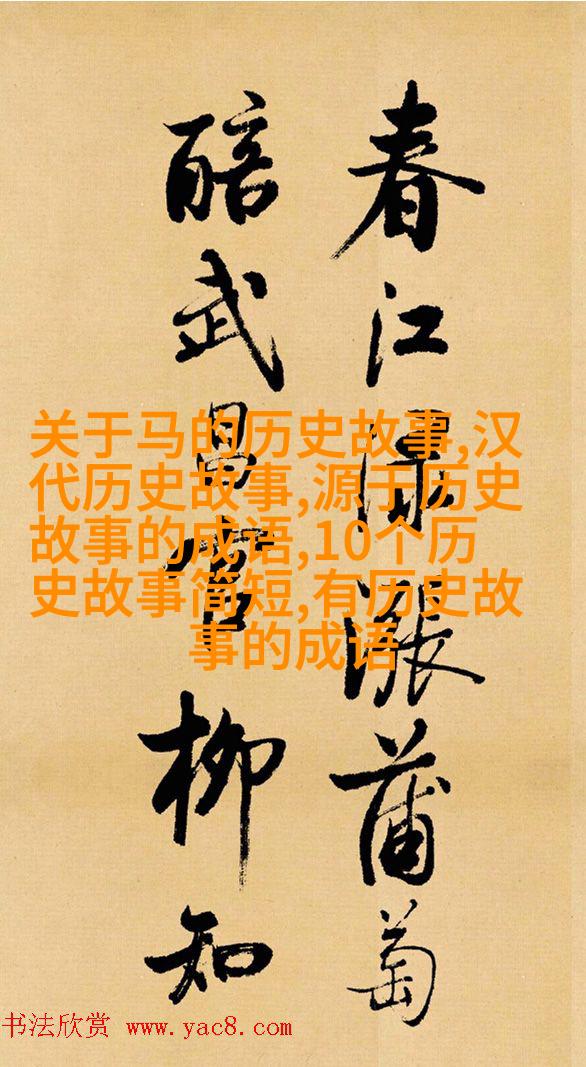 春江涨蒲萄
醅武昌官柳知
关于马的历史故事,汉
代历史故事,源于历史
故事的成语,10个历
史故事简短,有历史故
事的成语
书法欣赏 www.yac8.com